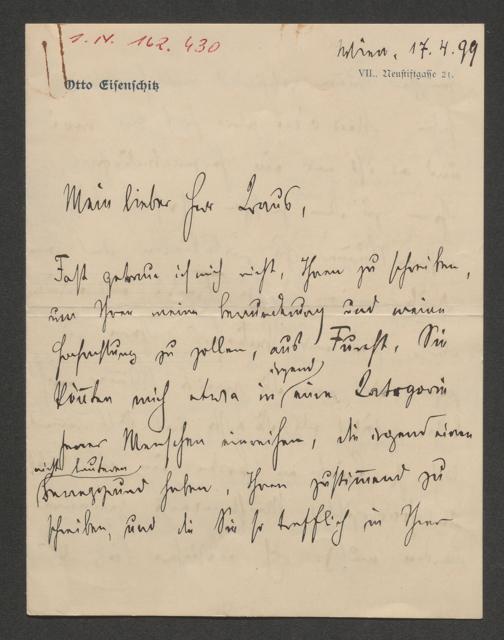 I. N. 162.430
Wien, 17.4.99
VII., Neustiftgasse 21.
Otto Eisenschitz
Mein lieber Herr Kraus,
Fast getraue ich mich nicht, Ihnen zu schreiben,
um Ihnen meine Bewunderung und meine
Hochachtung zu zollen, aus Furcht, Sie
könnten mich etwa in irgend eine Kategorie
jener Menschen einreihen, die irgend einen
nicht lauteren
Beweggrund haben, Ihnen zustimmend zu
schreiben, und die Sie so trefflich in Ihrer